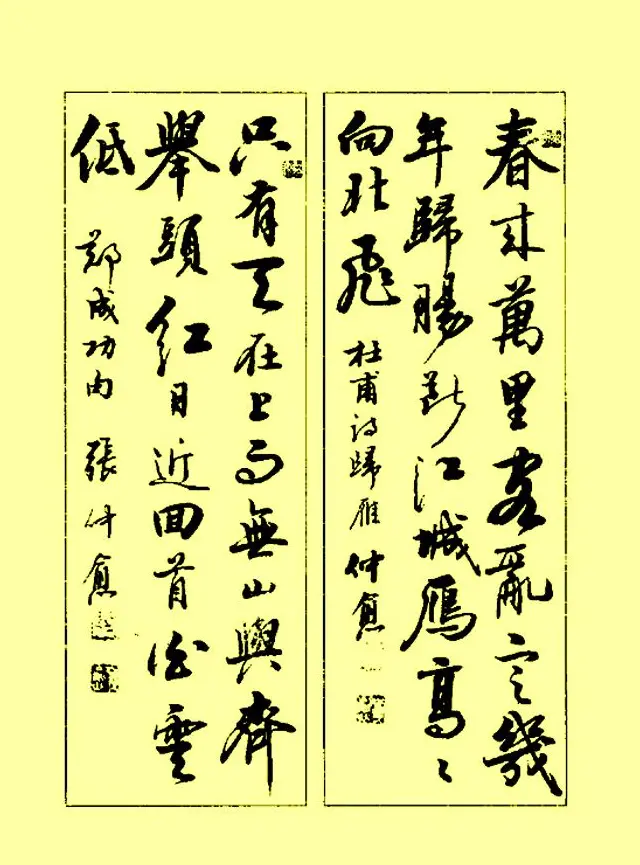 春来萬里客亂定幾
年歸腸斷江城鴈高〻
向北飛
杜甫诗歸雁 仲愈
只有天在上而無山與齊
舉頭紅日近回首白雲
低
鄭成功句 張仲愈